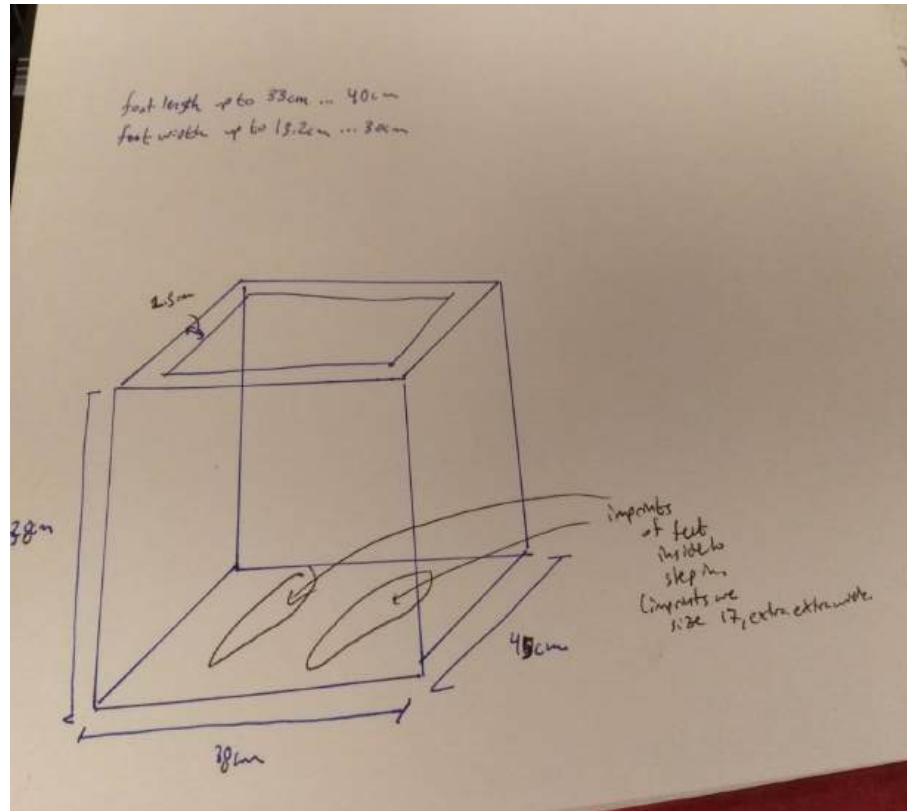 foot length up to 33cm ... 40cm
foot width up to 13.2cm ... 30cm
2.5cm
38cm
imprints
of feet
inside to
step in
(imprints are
size 17, extra extra wide
45cm
38cm